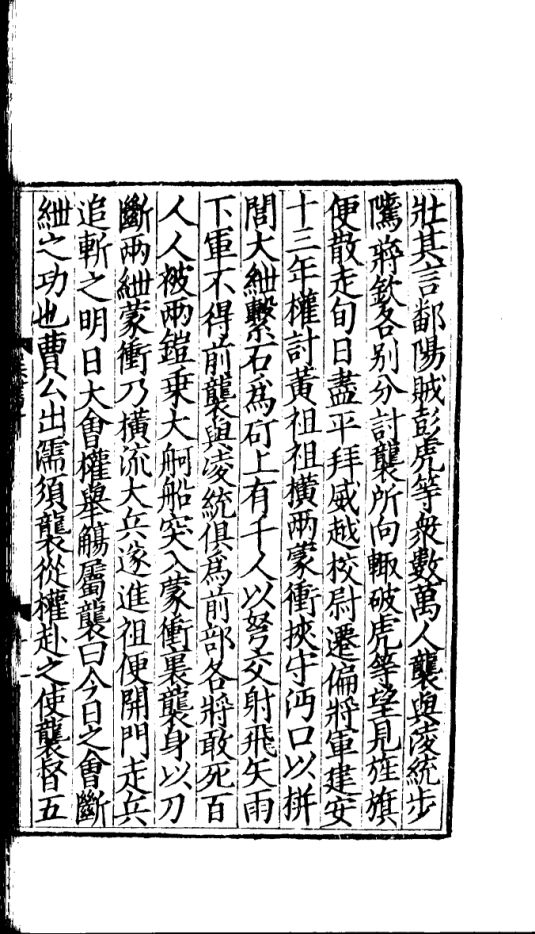 壯其言鄱陽賊彭虎等衆數萬人襲與凌統步
隲蔣欽各别分討襲所向輙破虎等望見旌旗
便散走旬日盡平拜威越校尉遷偏將軍建安
十三年權討黃祖祖橫兩蒙衝挾守沔口以栟
閭大紲繫石爲矴上有千人以弩交射飛矢雨
下軍不得前襲與凌統俱爲前部各將敢死百
人人被兩鎧乗大舸船突入蒙衝裏襲身以刀
斷兩紲蒙衝乃橫流大兵遂進祖便開門走兵
追斬之明日大會權舉觴屬襲曰今日之會斷
紲之功也曹公出濡須襲從權赴之使襲督五